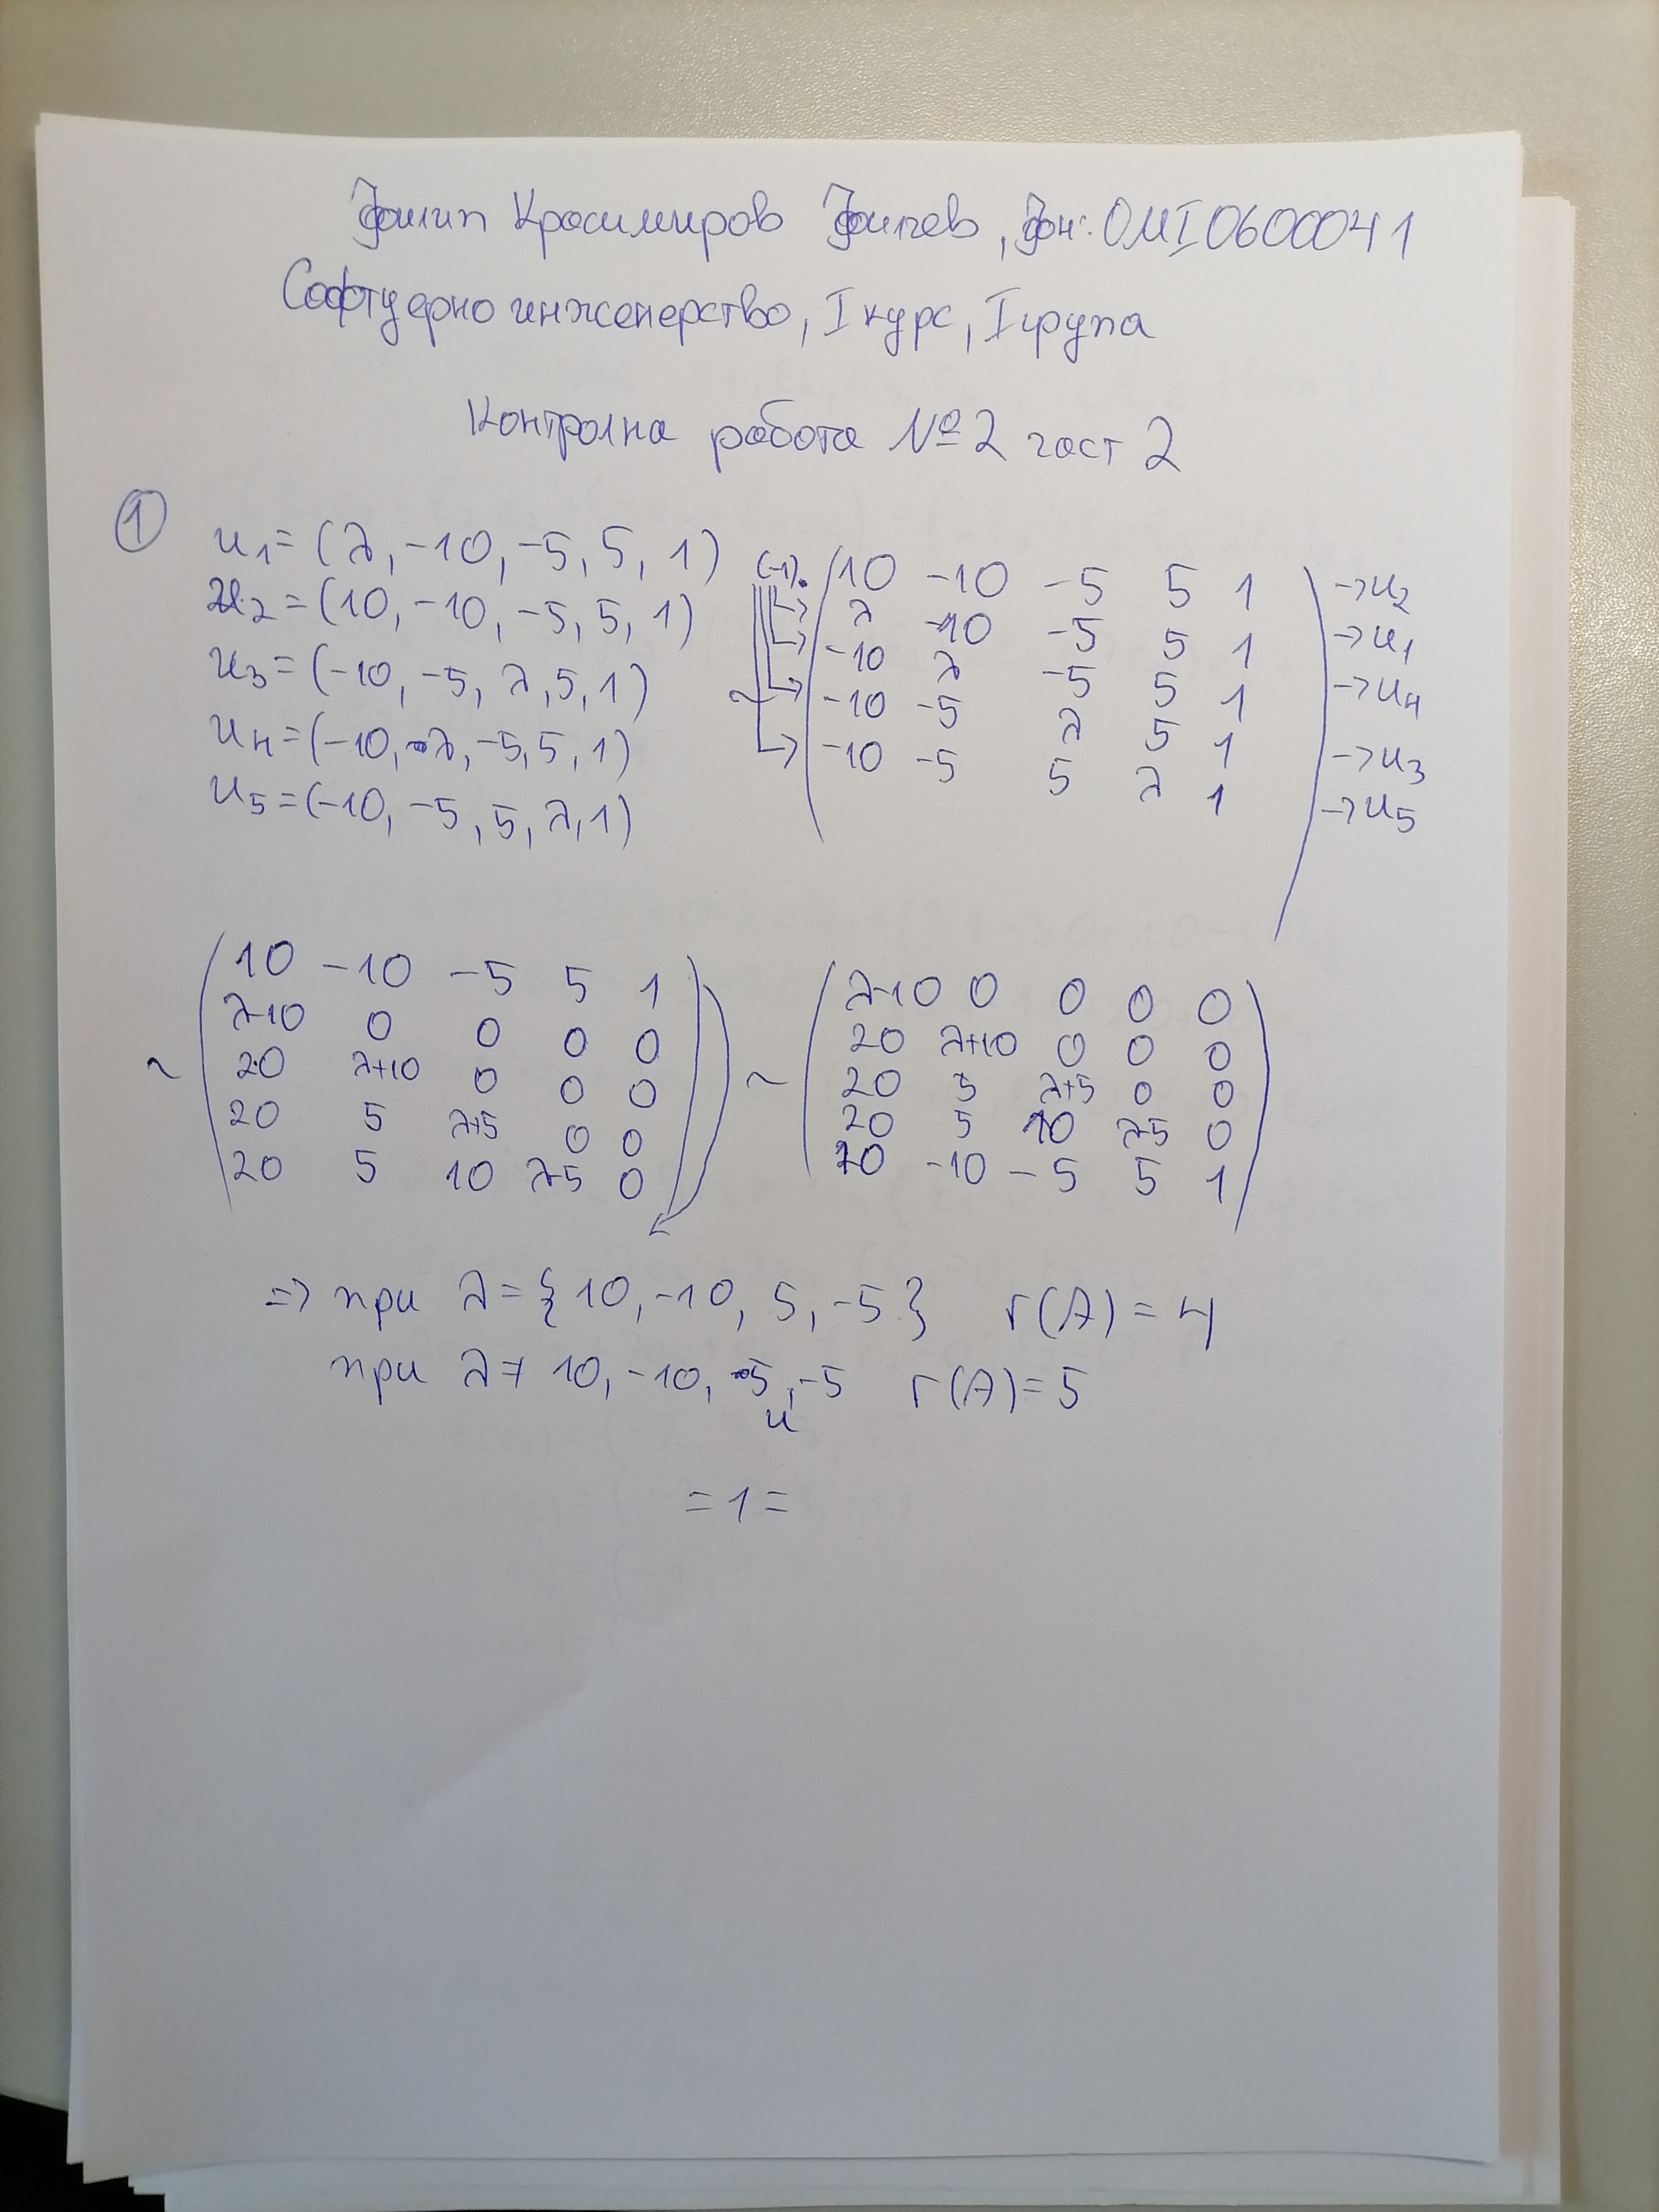 Филип Красимиров Филчев, Фн: 0MI0600041
Софтуерно инженерство, I курс, I група
Контролна работа №2 част 2
1
u1=(λ, -10, -5, 5, 1)
u2=(10, -10, -5, 5, 1)
u3=(-10, -5, λ, 5, 1)
u4=(-10, λ, -5, 5, 1)
u5=(-10, -5, 5, λ, 1)
(-1).
~
10 -10 -5 5 1 →u2
λ -10 -5 5 1 →u1
-10 λ -5 5 1 →u4
-10 -5 λ 5 1 →u3
-10 -5 5 λ 1 →u5
~
10 -10 -5 5 1
λ-10 0 0 0 0
20 λ+10 0 0 0
20 5 λ+5 0 0
20 5 10 λ-5 0
~
λ-10 0 0 0 0
20 λ+10 0 0 0
20 5 λ+5 0 0
20 5 10 λ-5 0
10 -10 -5 5 1
=> при λ={10, -10, 5, -5} r(A)=4
при λ≠10, -10, 5 и -5 r(A)=5
=1=